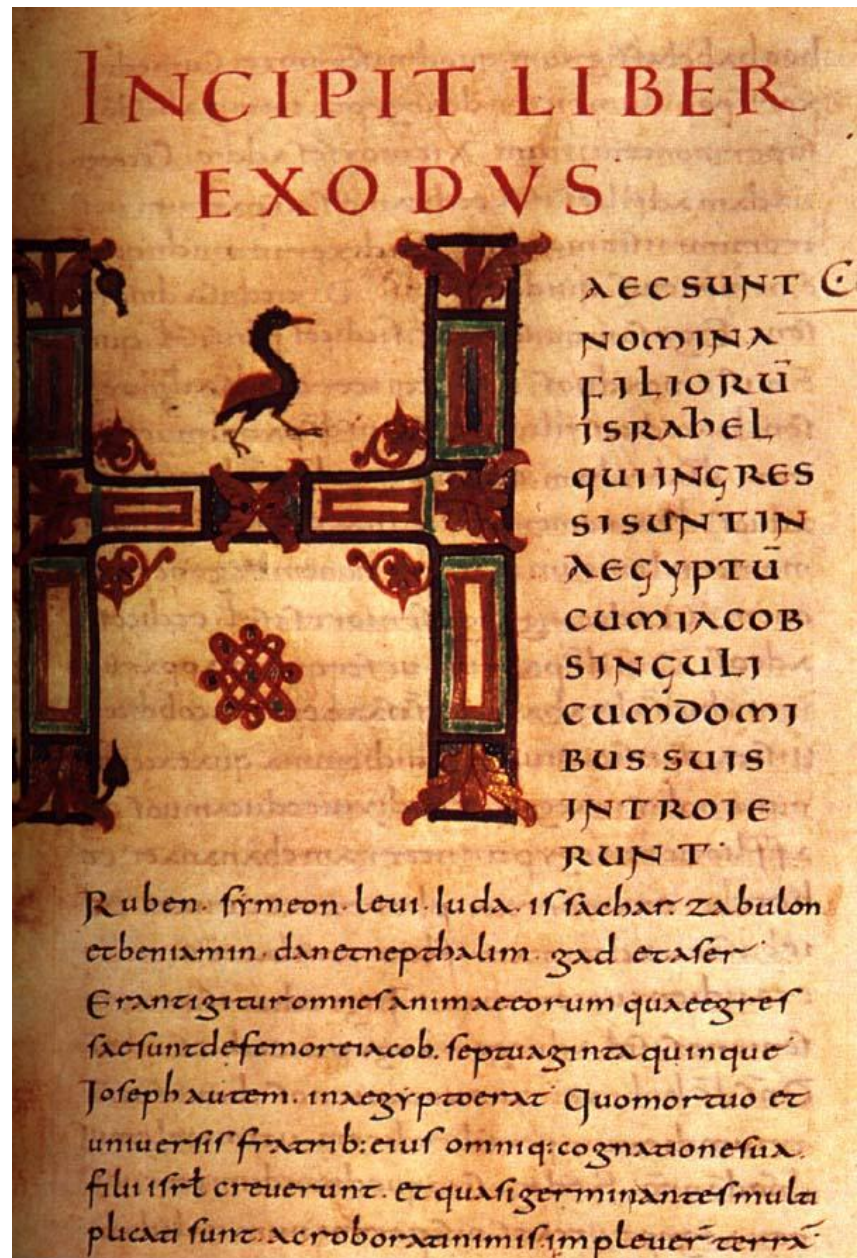 INCIPIT LIBER
EXODVS
HAEC SUNT C
NOMINA
FILIORŪ
ISRAhEL
QUI INGRES
SI SUNT IN
AEGYPTŪ
CUM IACOB
SINGULI
CUM DOMI
BUS SUIS
INTROIE
RUNT·
Ruben· sẏmeon· leui· Iuda· issachar· zabulon
et beniamin· dan et nepthalim· gad et aser·
Erant igitur omnes animae eorum quae egres
sae sunt de femore iacob· septuaginta quinque
Ioseph autem· in aegẏpto erat· Quo mortuo et
uniuersis fratrib: eius omniq: cognatione sua·
filii isrł creuerunt· et quasi germinantes multi
plicati sunt· ac roborati nimis· impleuer̄ terrā·